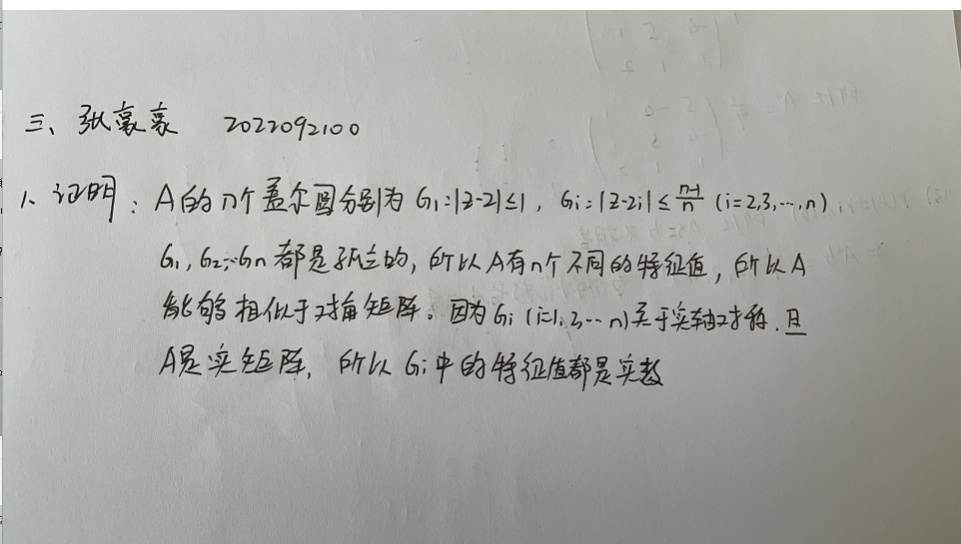 三、张豪豪 2022092100
1. 证明：A的n个盖尔圆分别为 G₁:|z-2|≤1, Gi:|z-2i|≤\frac{n-1}{n} (i=2,3,…,n),
G₁,G₂,…Gn 都是孤立的, 所以A有n个不同的特征值, 所以A
能够相似于对角矩阵。因为Gi (i=1,2,…n)关于实轴对称. 且
A是实矩阵, 所以Gi中的特征值都是实数